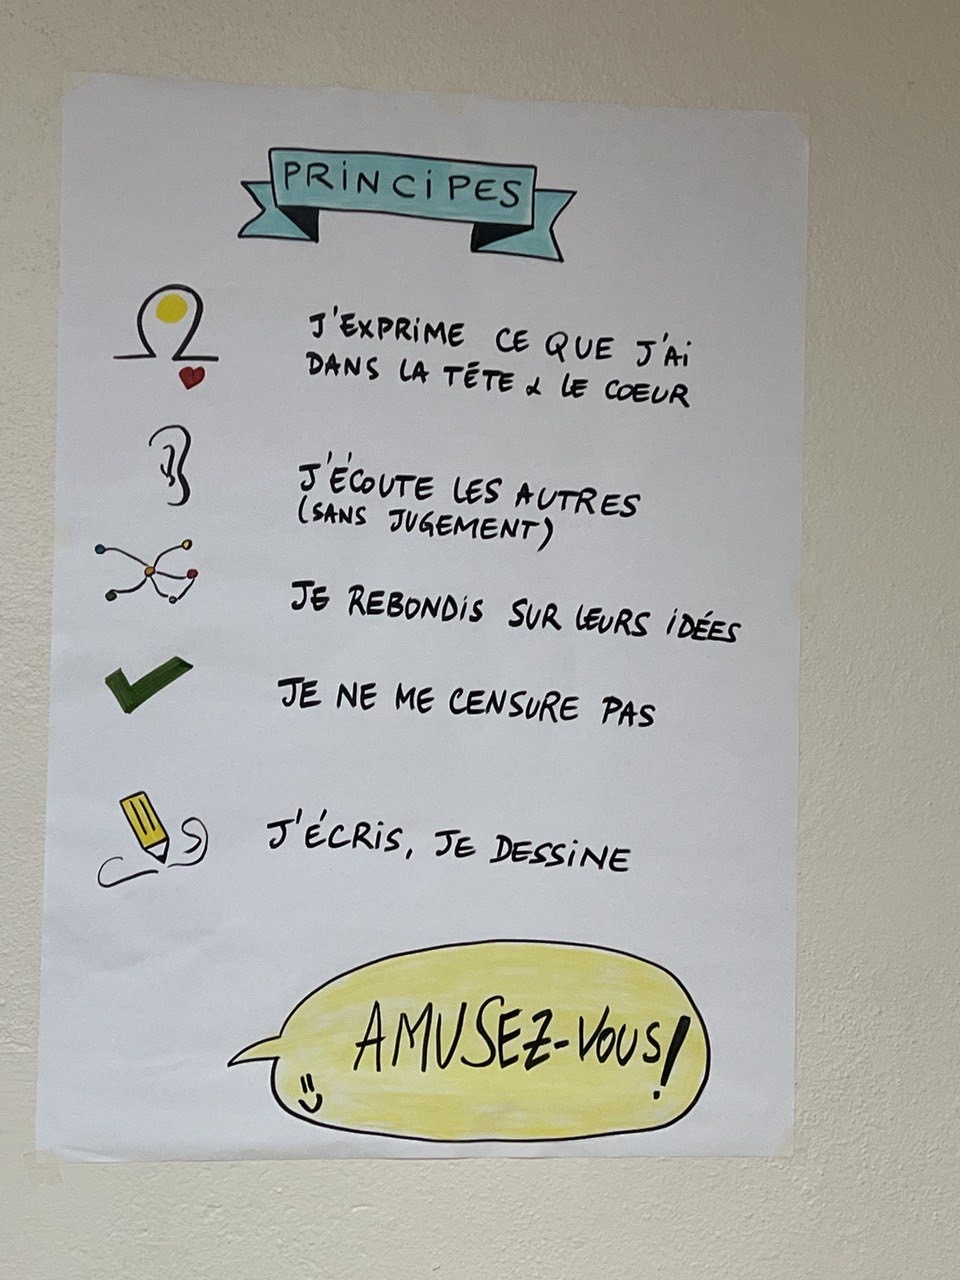 PRINCIPES
J'EXPRIME CE QUE J'AI
DANS LA TÊTE & LE COEUR
J'ÉCOUTE LES AUTRES
(SANS JUGEMENT)
JE REBONDIS SUR LEURS IDÉES
JE NE ME CENSURE PAS
J'ÉCRIS, JE DESSINE
AMUSEZ-VOUS!